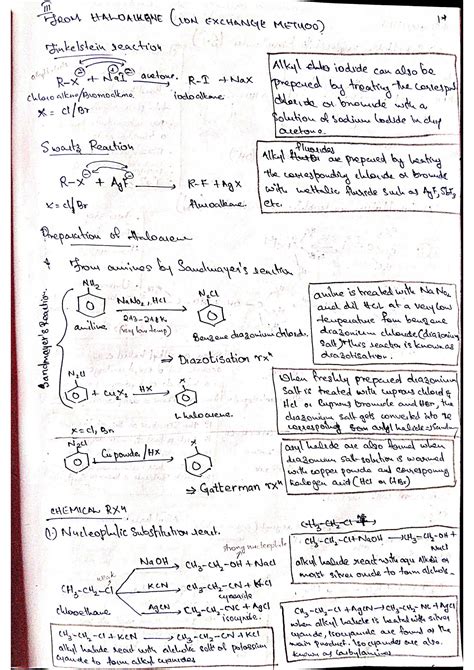 III
FROM HALOALKANE (ION EXCHANGE METHOD)
Finkelstein reaction
R-X + NaI acetone R-I + NaX
chloroalkane/Bromoalkane iodoalkane
X = Cl/Br
Alkyl iodide can also be
prepared by treating the
chloride or bromide with a
solution of sodium iodide in dry
acetone.
Swartz Reaction
R-X + AgF R-F + AgX
X = Cl/Br fluoroalkane.
fluorides
Alkyl are prepared by heating
the corresponding chloride or bromide
with metallic fluoride such as AgF,
etc
Preparation of Haloarene
* From amines by Sandmayer's reaction
Sandmayer's Reaction
NH2 NaNO2, HCl N2Cl
aniline 273-278K Benzene diazonium chloride.
(very low temp)
→ Diazotisation rxn
aniline is treated with NaNO2
and dil HCl at a very low
temperature form benzene
diazonium chloride (diazonium
salt). This reaction is known as
diazotisation.
N2Cl + CuX2 HX X
haloarene.
X = Cl, Br
When freshly prepared diazonium
salt is treated with cuprous chloride
HCl or Cuprous bromide and HBr, the
diazonium salt gets converted into the
corresponding
N2Cl Cu powder/HX X
→ Gatterman rxn
aryl halide are also formed when
diazonium salt solution is warmed
with copper powder and corresponding
halogen acid (HCl or HBr)
CHEMICAL RXN
(1) Nucleophilic Substitution react.
strong nucleophile
weak
CH3-CH2-Cl
chloroethane
NaOH CH3-CH2-OH + NaCl
KCN CH3-CH2-CN + KCl
cyanide
AgCN CH3-CH2-NC + AgCl
isocyanide.
CH3-CH2-Cl
CH3-CH2-Cl + NaOH → CH3-CH2-OH +
NaCl
alkyl halide react with aqu alkali or
moist silver oxide to form alcohols.
CH3-CH2-Cl + KCN → CH3-CH2-CN + KCl
alkyl halide react with alcoholic solt of potassium
cyanide to form alkyl cyanides
CH3-CH2-Cl + AgCN → CH3-CH2-NC + AgCl
when alkyl halide is heated with silver
cyanide, isocyanide are formed as the
main product. Isocyanides are also
known as carbylamines